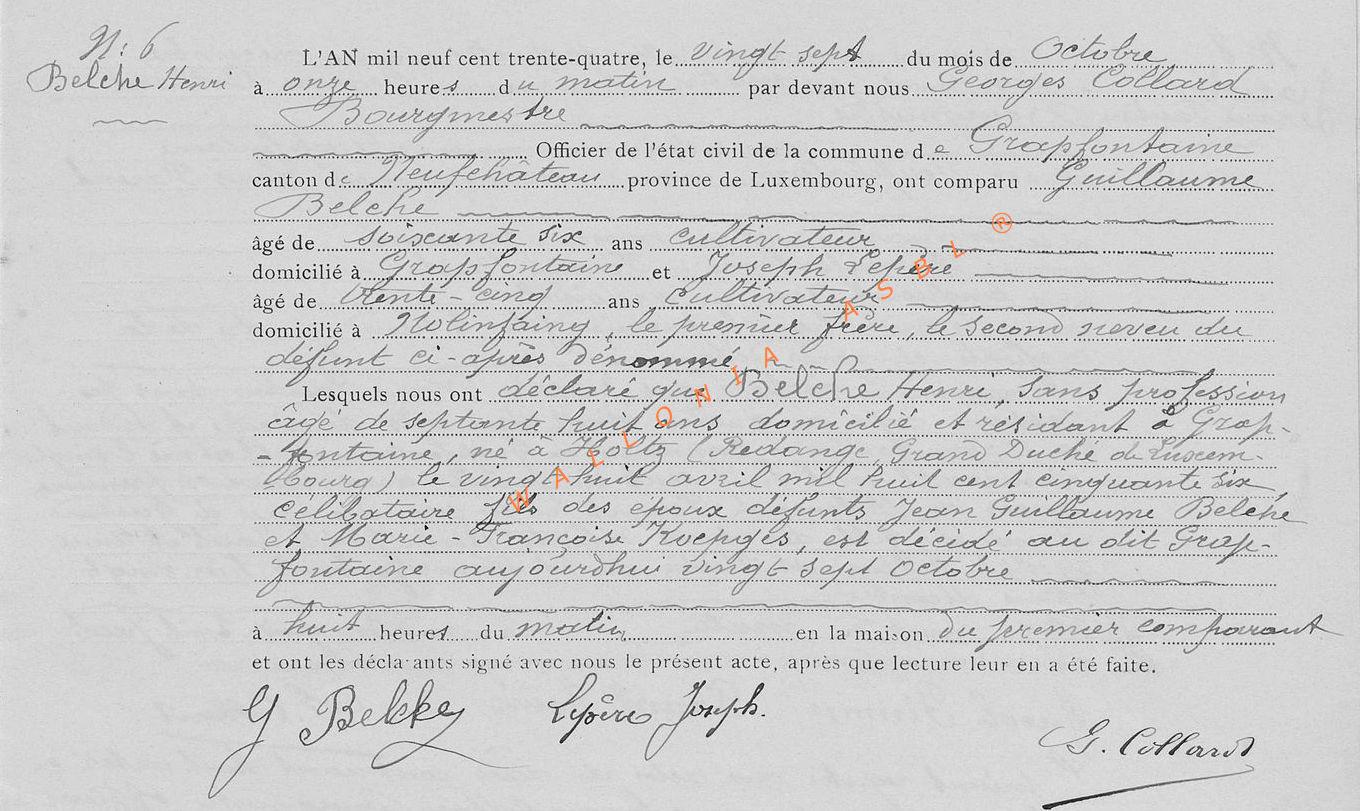 N: 6
Belche Henri
L'AN mil neuf cent trente-quatre, le vingt sept du mois de Octobre
à onze heures du matin par devant nous Georges Collard
Bourgmestre
Officier de l'état civil de la commune de Grapfontaine
canton de Neufchâteau province de Luxembourg, ont comparu Guillaume
Belche
âgé de soixante six ans cultivateur
domicilié à Grapfontaine et Joseph Lepère
âgé de trente-cinq ans cultivateur
domicilié à Nolinfaing, le premier frère, le second neveu du
défunt ci-après dénommé
Lesquels nous ont déclaré que Belche Henri, sans profession
âgé de septante huit ans domicilié et résidant à Grap-
-fontaine, né à Holtz (Redange Grand Duché de Luxem-
bourg) le vingt huit avril mil huit cent cinquante six,
célibataire fils des époux défunts Jean Guillaume Belche
et Marie-Françoise Kuepges, est décidé au dit Grap-
fontaine aujourdhui vingt sept Octobre
à huit heures du matin en la maison du premier comparant
et ont les déclarants signé avec nous le présent acte, après que lecture leur en a été faite.
G Belche Lepère Joseph.
G. Collard
WALLONIA ASBL ®